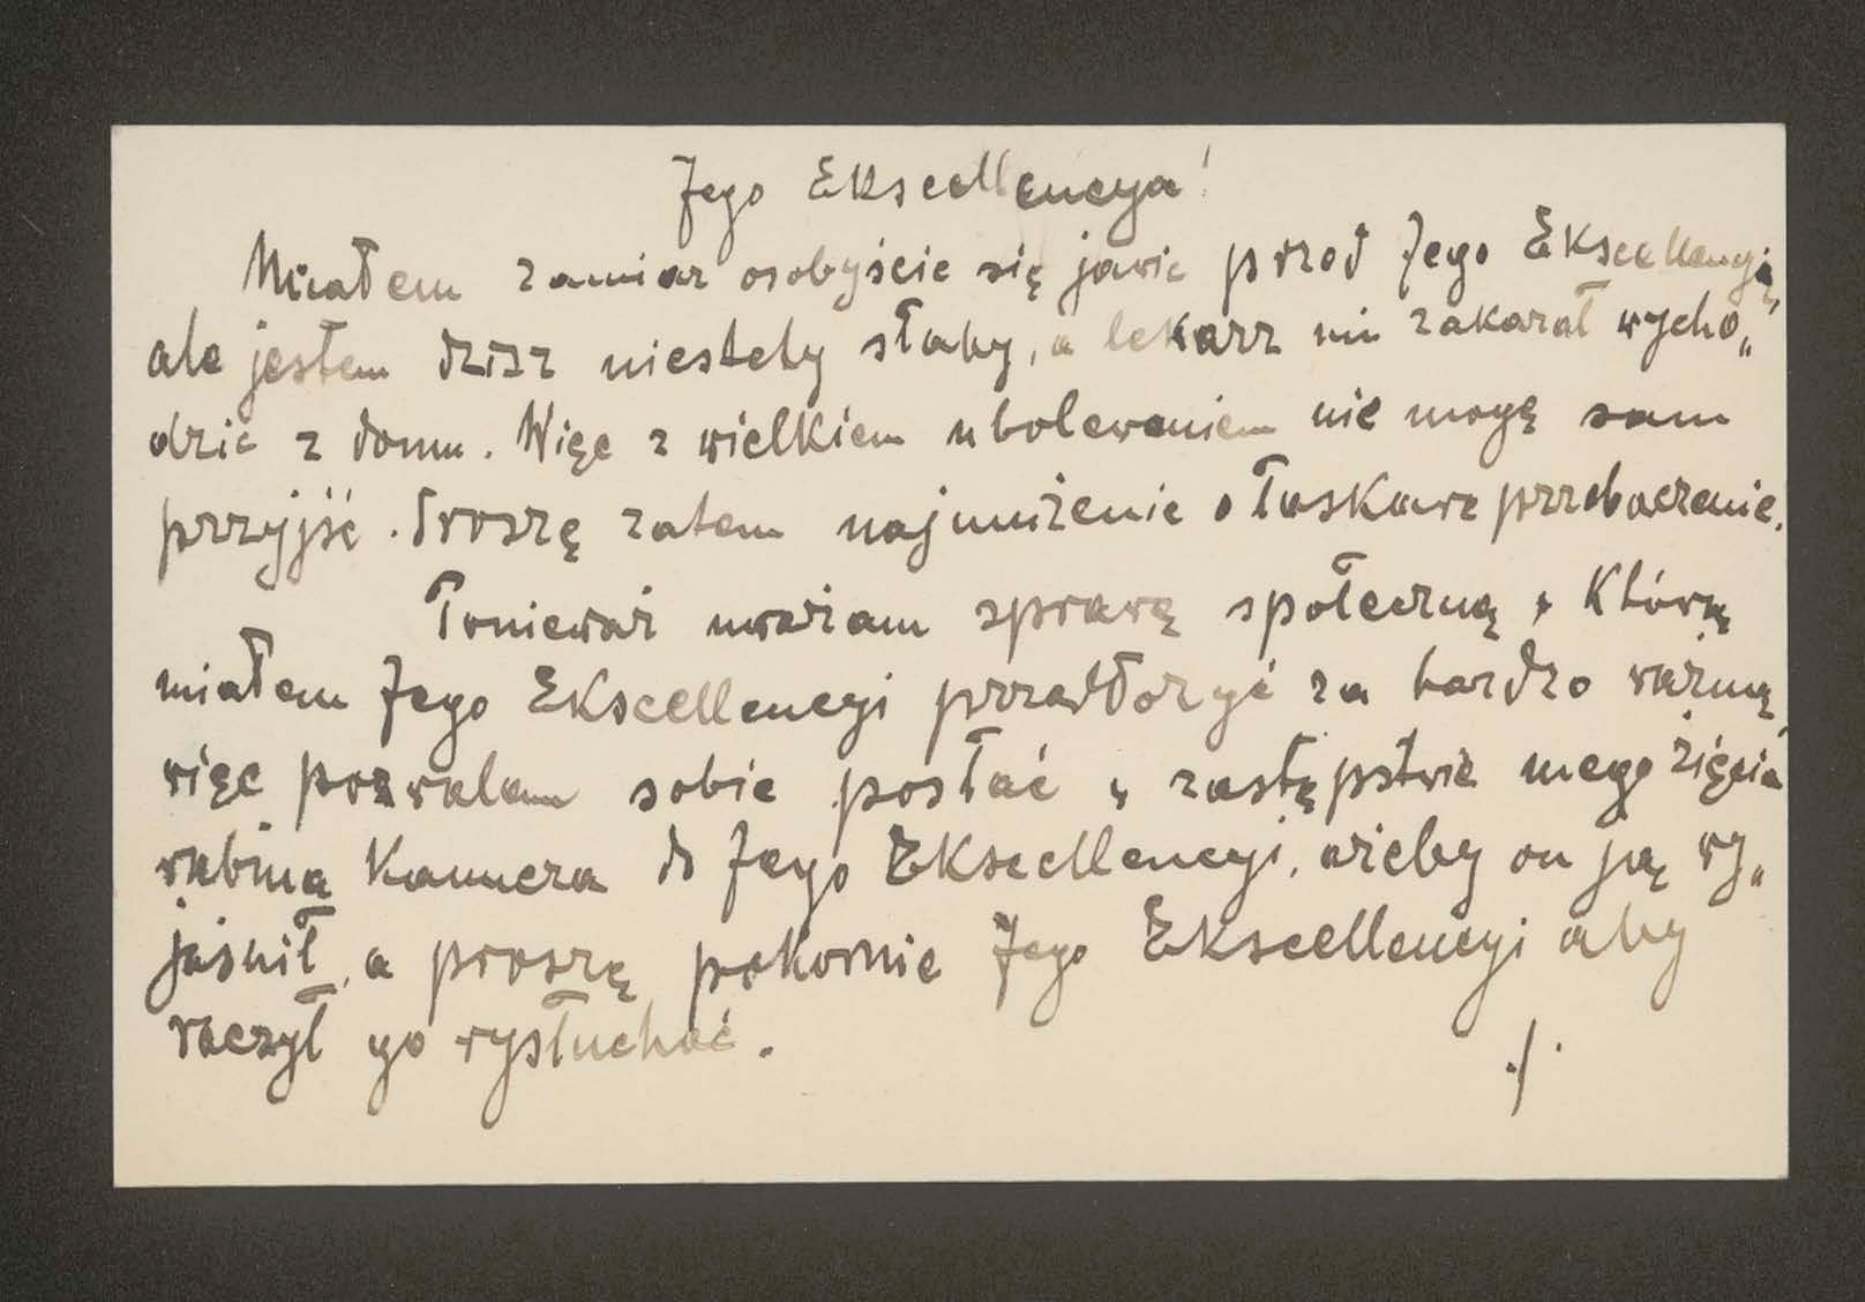 Jego Ekscellencya!
Miałem zamiar osobyście się jawic przed Jego Ekscellencyją,
ale jestem dzisz niestety słaby, a lekarz mi zakazał wycho„
dzic z domu. Więc z wielkiem ubolewaniem nie mogę sam
przyjść. Proszę zatem najuniżenie o łaskawe przebaczenie.
Poniewaź uważam sprawę społeczną, którą
miałem Jego Ekscellencyi przedłozyć za bardzo ważną,
więc pozwalam sobie posłać w zastępstwie mego zięcia
rabina Kannera do Jego Ekscellencyi, ażeby on ją wy„
jaśnił, a proszę pokornie Jego Ekscellencyi aby
raczył go wysłuchać.
./.